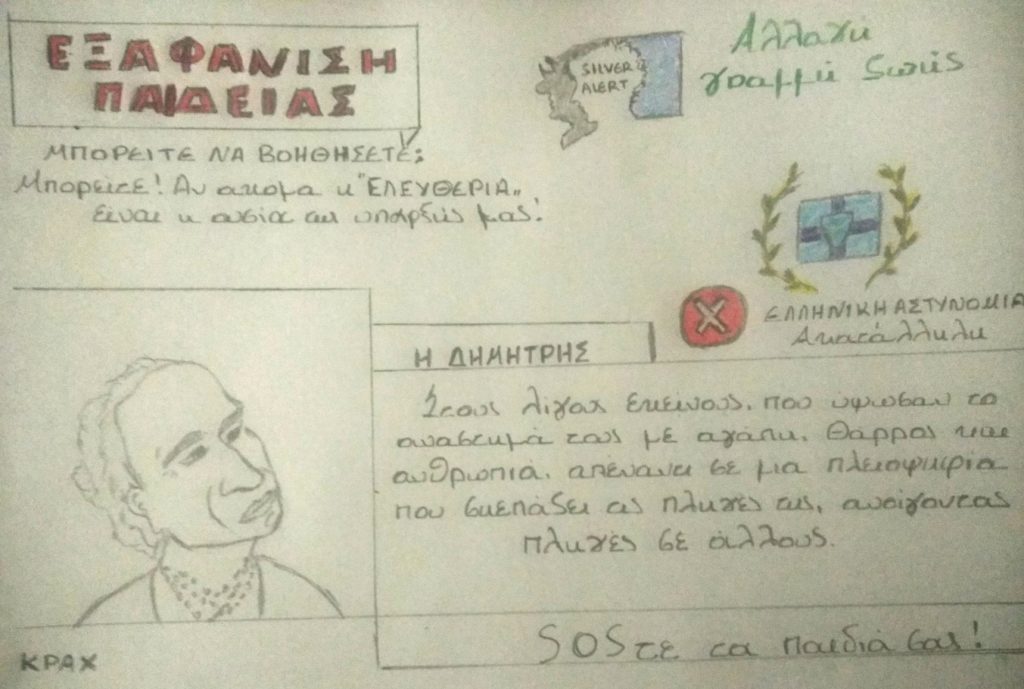 ΕΞΑΦΑΝΙΣΗ
ΠΑΙΔΕΙΑΣ
ΜΠΟΡΕΙΤΕ ΝΑ ΒΟΗΘΗΣΕΤΕ;
Μπορείτε! Αν ακόμα η "ΕΛΕΥΘΕΡΙΑ„
είναι η ουσία της ύπαρξής μας!
SILVER
ALERT
Αλλαγή
γραμμή ζωής
ΕΛΛΗΝΙΚΗ ΑΣΤΥΝΟΜΙΑ
Ακατάλληλη
Η ΔΗΜΗΤΡΗΣ
Στους λίγους εκείνους, που ύψωσαν το
ανάστημά τους με αγάπη, θάρρος και
ανθρωπιά, απέναντι σε μια πλειοψηφία
που σκεπάζει τις πληγές της, ανοίγοντας
πληγές σε άλλους.
SOSτε τα παιδιά σας!
ΚΡΑΧ